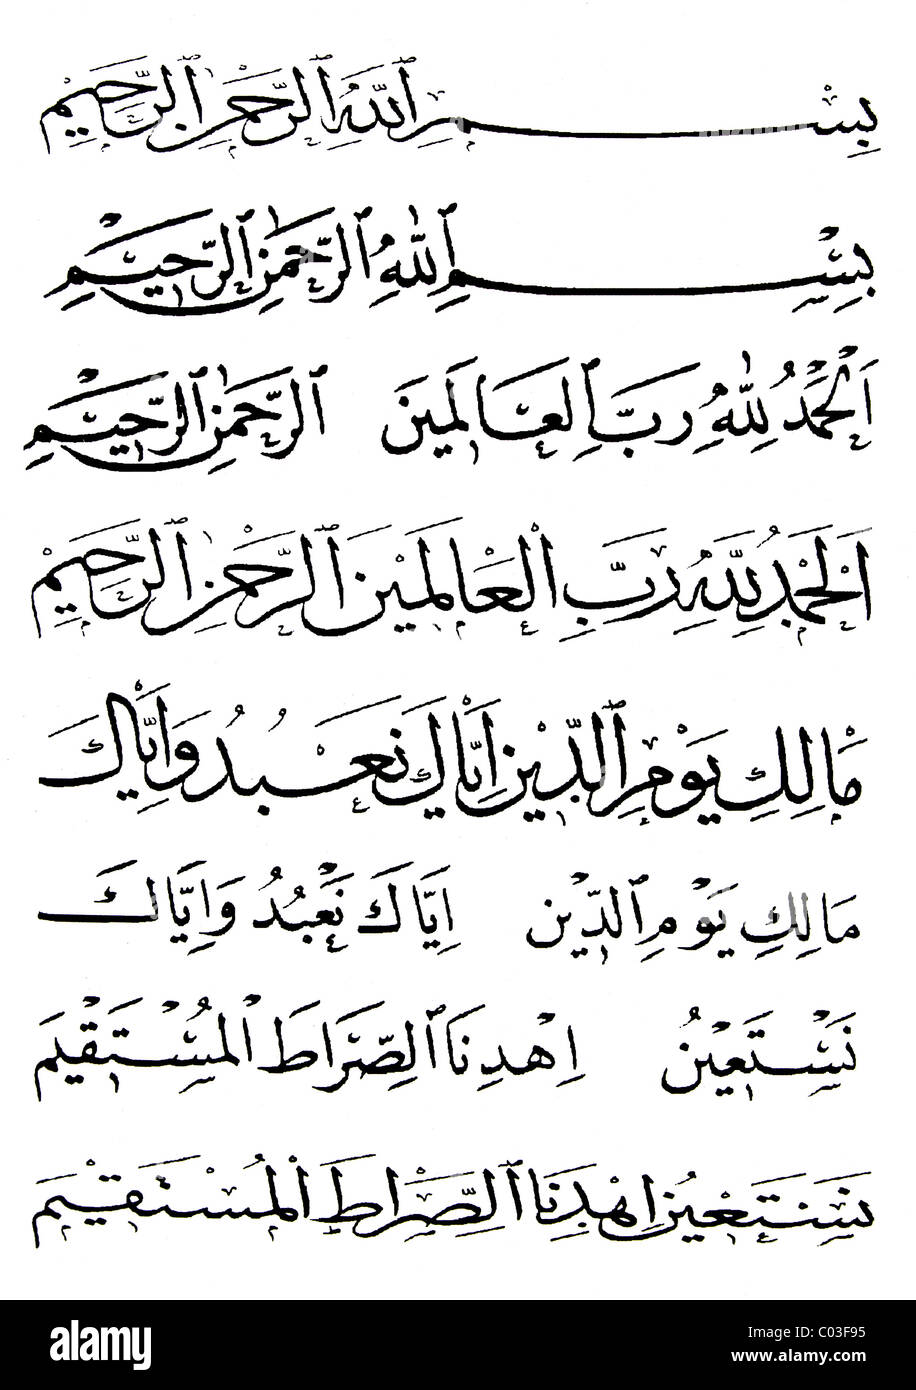 بِسْمِ ٱللَّهِ ٱلرَّحْمٰنِ ٱلرَّحِيْمِ
بِسْمِ ٱللّٰهِ ٱلرَّحْمَٰنِ ٱلرَّحِيْمِ
اَلْحَمْدُ لِلّٰهِ رَبِّ ٱلْعَالَمِينَ ٱلرَّحْمَٰنِ ٱلرَّحِيْمِ
اَلْحَمْدُ لِلَّهِ رَبِّ ٱلْعَالَمِيْنَ ٱلرَّحْمٰنِ ٱلرَّحِيْمِ
مَالِكِ يَوْمِ ٱلدِّيْنِ اِيَّاكَ نَعْبُدُ وَاِيَّاكَ
مَالِكِ يَوْمِ ٱلدِّيْنِ اِيَّاكَ نَعْبُدُ وَاِيَّاكَ
نَسْتَعِيْنُ اِهْدِنَا ٱلصِّرَاطَ ٱلْمُسْتَقِيْمَ
نَسْتَعِيْنُ اِهْدِنَا ٱلصِّرَاطَ ٱلْمُسْتَقِيْمَ
alamy
Image ID: C03F95
www.alamy.com